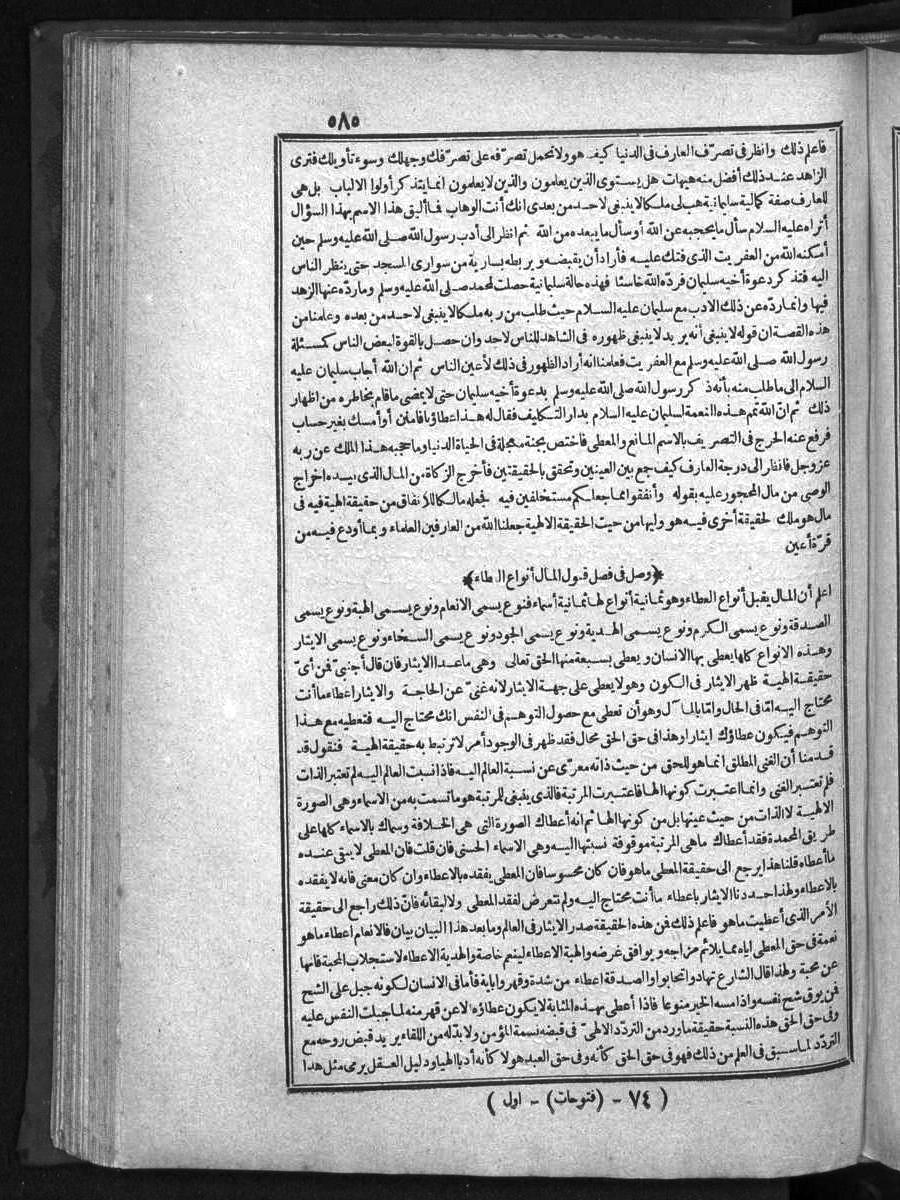 ٥٨٥
فاعلم ذلك وانظر فى تصرّف العارف فى الدنيا كيف هو ولا تحمل تصرّفه على تصرّفك وجهلك وسوء تأويلك فترى
الزاهد عند ذلك أفضل منه هيهات هل يستوى الذين يعلمون والذين لا يعلمون انما يتذكر أولوا الالباب بل هى
للعارف صفة كمالية سليمانية هب لى ملكا لا ينبغى لاحد من بعدى انك أنت الوهاب فما أليق هذا الاسم بهذا السؤال
أتراه عليه السلام سأل ما يحجبه عن الله أو سأل ما يبعده من الله ثم انظر الى أدب رسول الله صلى الله عليه وسلم حين
أمكنه الله من العفريت الذى فتك عليه فأراد أن يقبضه ويربطه بسارية من سوارى المسجد حتى ينظر الناس
اليه فتذكر دعوة أخيه سليمان فردّه الله خاسئا فهذه حالة سليمانية حصلت لمحمد صلى الله عليه وسلم وما ردّه عنها الزهد
فيها وانما ردّه عن ذلك الادب مع سليمان عليه السلام حيث طلب من ربه ملكا لا ينبغى لاحد من بعده وعلمنا من
هذه القصة ان قوله لا ينبغى أنه يريد لا ينبغى ظهوره فى الشاهد للناس لاحد وان حصل بالقوة لبعض الناس كمسئلة
رسول الله صلى الله عليه وسلم مع العفريت فعلمنا انه أراد الظهور فى ذلك لأعين الناس ثم ان الله أجاب سليمان عليه
السلام الى ما طلب منه بأنه ذكر رسول الله صلى الله عليه وسلم بدعوة أخيه سليمان حتى لا يمضى ما قام بخاطره من اظهار
ذلك ثم انّ الله تمم هذه النعمة لسليمان عليه السلام بدار التكليف فقال له هذا عطاؤنا فامنن أو أمسك بغير حساب
فرفع عنه الحرج فى التصريف بالاسم المانع والمعطى فاختص بجنة معجلة فى الحياة الدنيا وما حجبه هذا الملك عن ربه
عز وجل فانظر الى درجة العارف كيف جمع بين العينين وتحقق بالحقيقتين فأخرج الزكاة من المال الذى بيده اخراج
الوصى من مال المحجور عليه بقوله وأنفقوا مما جعلكم مستخلفين فيه فجعله مالكا للانفاق من حقيقة الهية فيه فى
مال هو ملك لحقيقة أخرى فيه هو وليها من حيث الحقيقة الالهية جعلنا الله من العارفين العلماء وبما أودع فيه من
قرّة أعين
﴿وصل فى فصل قبول المال أنواع العطاء﴾
اعلم أن المال يقبل أنواع العطاء وهو ثمانية أنواع لها ثمانية أسماء فنوع يسمى الانعام ونوع يسمى الهبة ونوع يسمى
الصدقة ونوع يسمى الكرم ونوع يسمى الهدية ونوع يسمى الجود ونوع يسمى السخاء ونوع يسمى الايثار
وهذه الانواع كلها يعطى بها الانسان ويعطى بسبعة منها الحق تعالى وهى ما عدا الايثار فان قال أجنبىّ فمن أىّ
حقيقة الهية ظهر الايثار فى الكون وهو لا يعطى على جهة الايثار لانه غنىّ عن الحاجة والايثار اعطاء ما أنت
محتاج اليه امّا فى الحال وامّا بالمآل وهو أن تعطى مع حصول التوهم فى النفس انك محتاج اليه فتعطيه مع هذا
التوهم فيكون عطاؤك ايثارا وهذا فى حق الحق محال فقد ظهر فى الوجود أمر لا ترتبط به حقيقة الهية فنقول قد
قدمنا أن الغنى المطلق انما هو للحق من حيث ذاته معرّى عن نسبة العالم اليه فاذا نسبت العالم اليه لم تعتبر الذات
فلم تعتبر الغنى وانما اعتبرت كونها الها فاعتبرت المرتبة فالذى ينبغى للمرتبة هو ما تسمت به من الاسماء وهى الصورة
الالهية لا الذات من حيث عينها بل من كونها الها ثم انه أعطاك الصورة التى هى الخلافة وسماك بالاسماء كلها على
طريق المحمدة فقد أعطاك ما هى المرتبة موقوفة نسبتها اليه وهى الاسماء الحسنى فان قلت فان المعطى لا يبقى عنده
ما أعطاه قلنا هذا يرجع الى حقيقة المعطى ما هو فان كان محسوسا فان المعطى يفقده بالاعطاء وان كان معنى فانه لا يفقده
بالاعطاء ولهذا حددنا الايثار باعطاء ما أنت محتاج اليه ولم نتعرض لفقد المعطى ولا لبقائه فانّ ذلك راجع الى حقيقة
الأمر الذى أعطيت ما هو فاعلم ذلك فمن هذه الحقيقة صدر الايثار فى العالم وما بعد هذا البيان بيان فالانعام اعطاء ما هو
نعمة فى حق المعطى اياه مما يلائم مزاجه ويوافق غرضه والهبة الاعطاء لينعم خاصة والهدية الاعطاء لاستجلاب المحبة فانها
عن محبة ولهذا قال الشارع تهادوا تحابوا والصدقة اعطاء من شدة وقهر واباية فأما فى الانسان لكونه جبل على الشح
فمن يوق شح نفسه واذا مسه الخير منوعا فاذا أعطى بهذه المثابة لا يكون عطاؤه الا عن قهر منه لما جبلت النفس عليه
وفى حق الحق هذه النسبة حقيقة ما ورد من التردّد الالهىّ فى قبضه نسمة المؤمن ولا بدّ له من اللقاء يريد قبض روحه مع
التردّد لما سبق فى العلم من ذلك فهو فى حق الحق كأنه وفى حق العبد هو لا كأنه أدبا الهيا ودليل العقل يرمى مثل هذا
(٧٤ - (فتوحات) - اول)